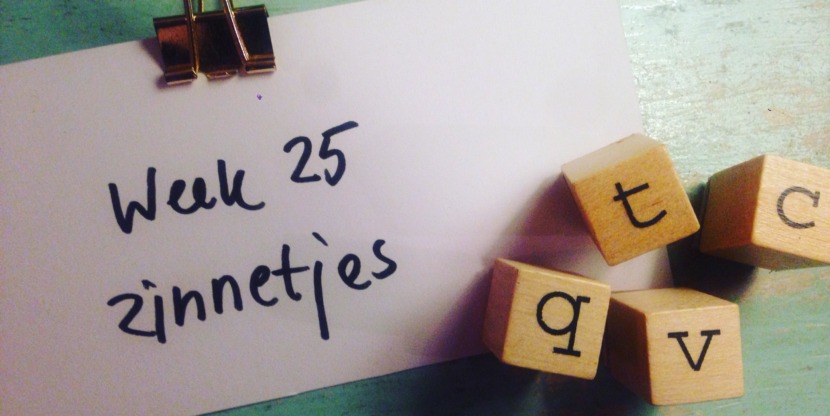 Week 25
zinnetjes
t
c
q
v